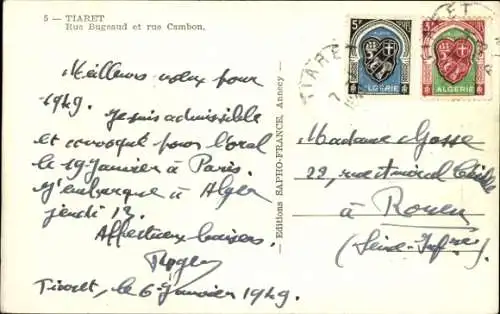 5 — TIARET
Rue Bugeaud et rue Cambon.
Meilleurs vœux pour
1949. Je suis admissible
et convoqué pour l'oral
le 19 Janvier à Paris.
J'embarque à Alger
jeudi 13.
Affectueux baisers.
Roger
Tiaret, le 6 Janvier 1949.
Editions SAPHO-FRANCE, Annecy
TIARET
5F
ALGERIE
ALGERIE
Madame Gosse
22, rue
à Rouen
(Seine-Infre)